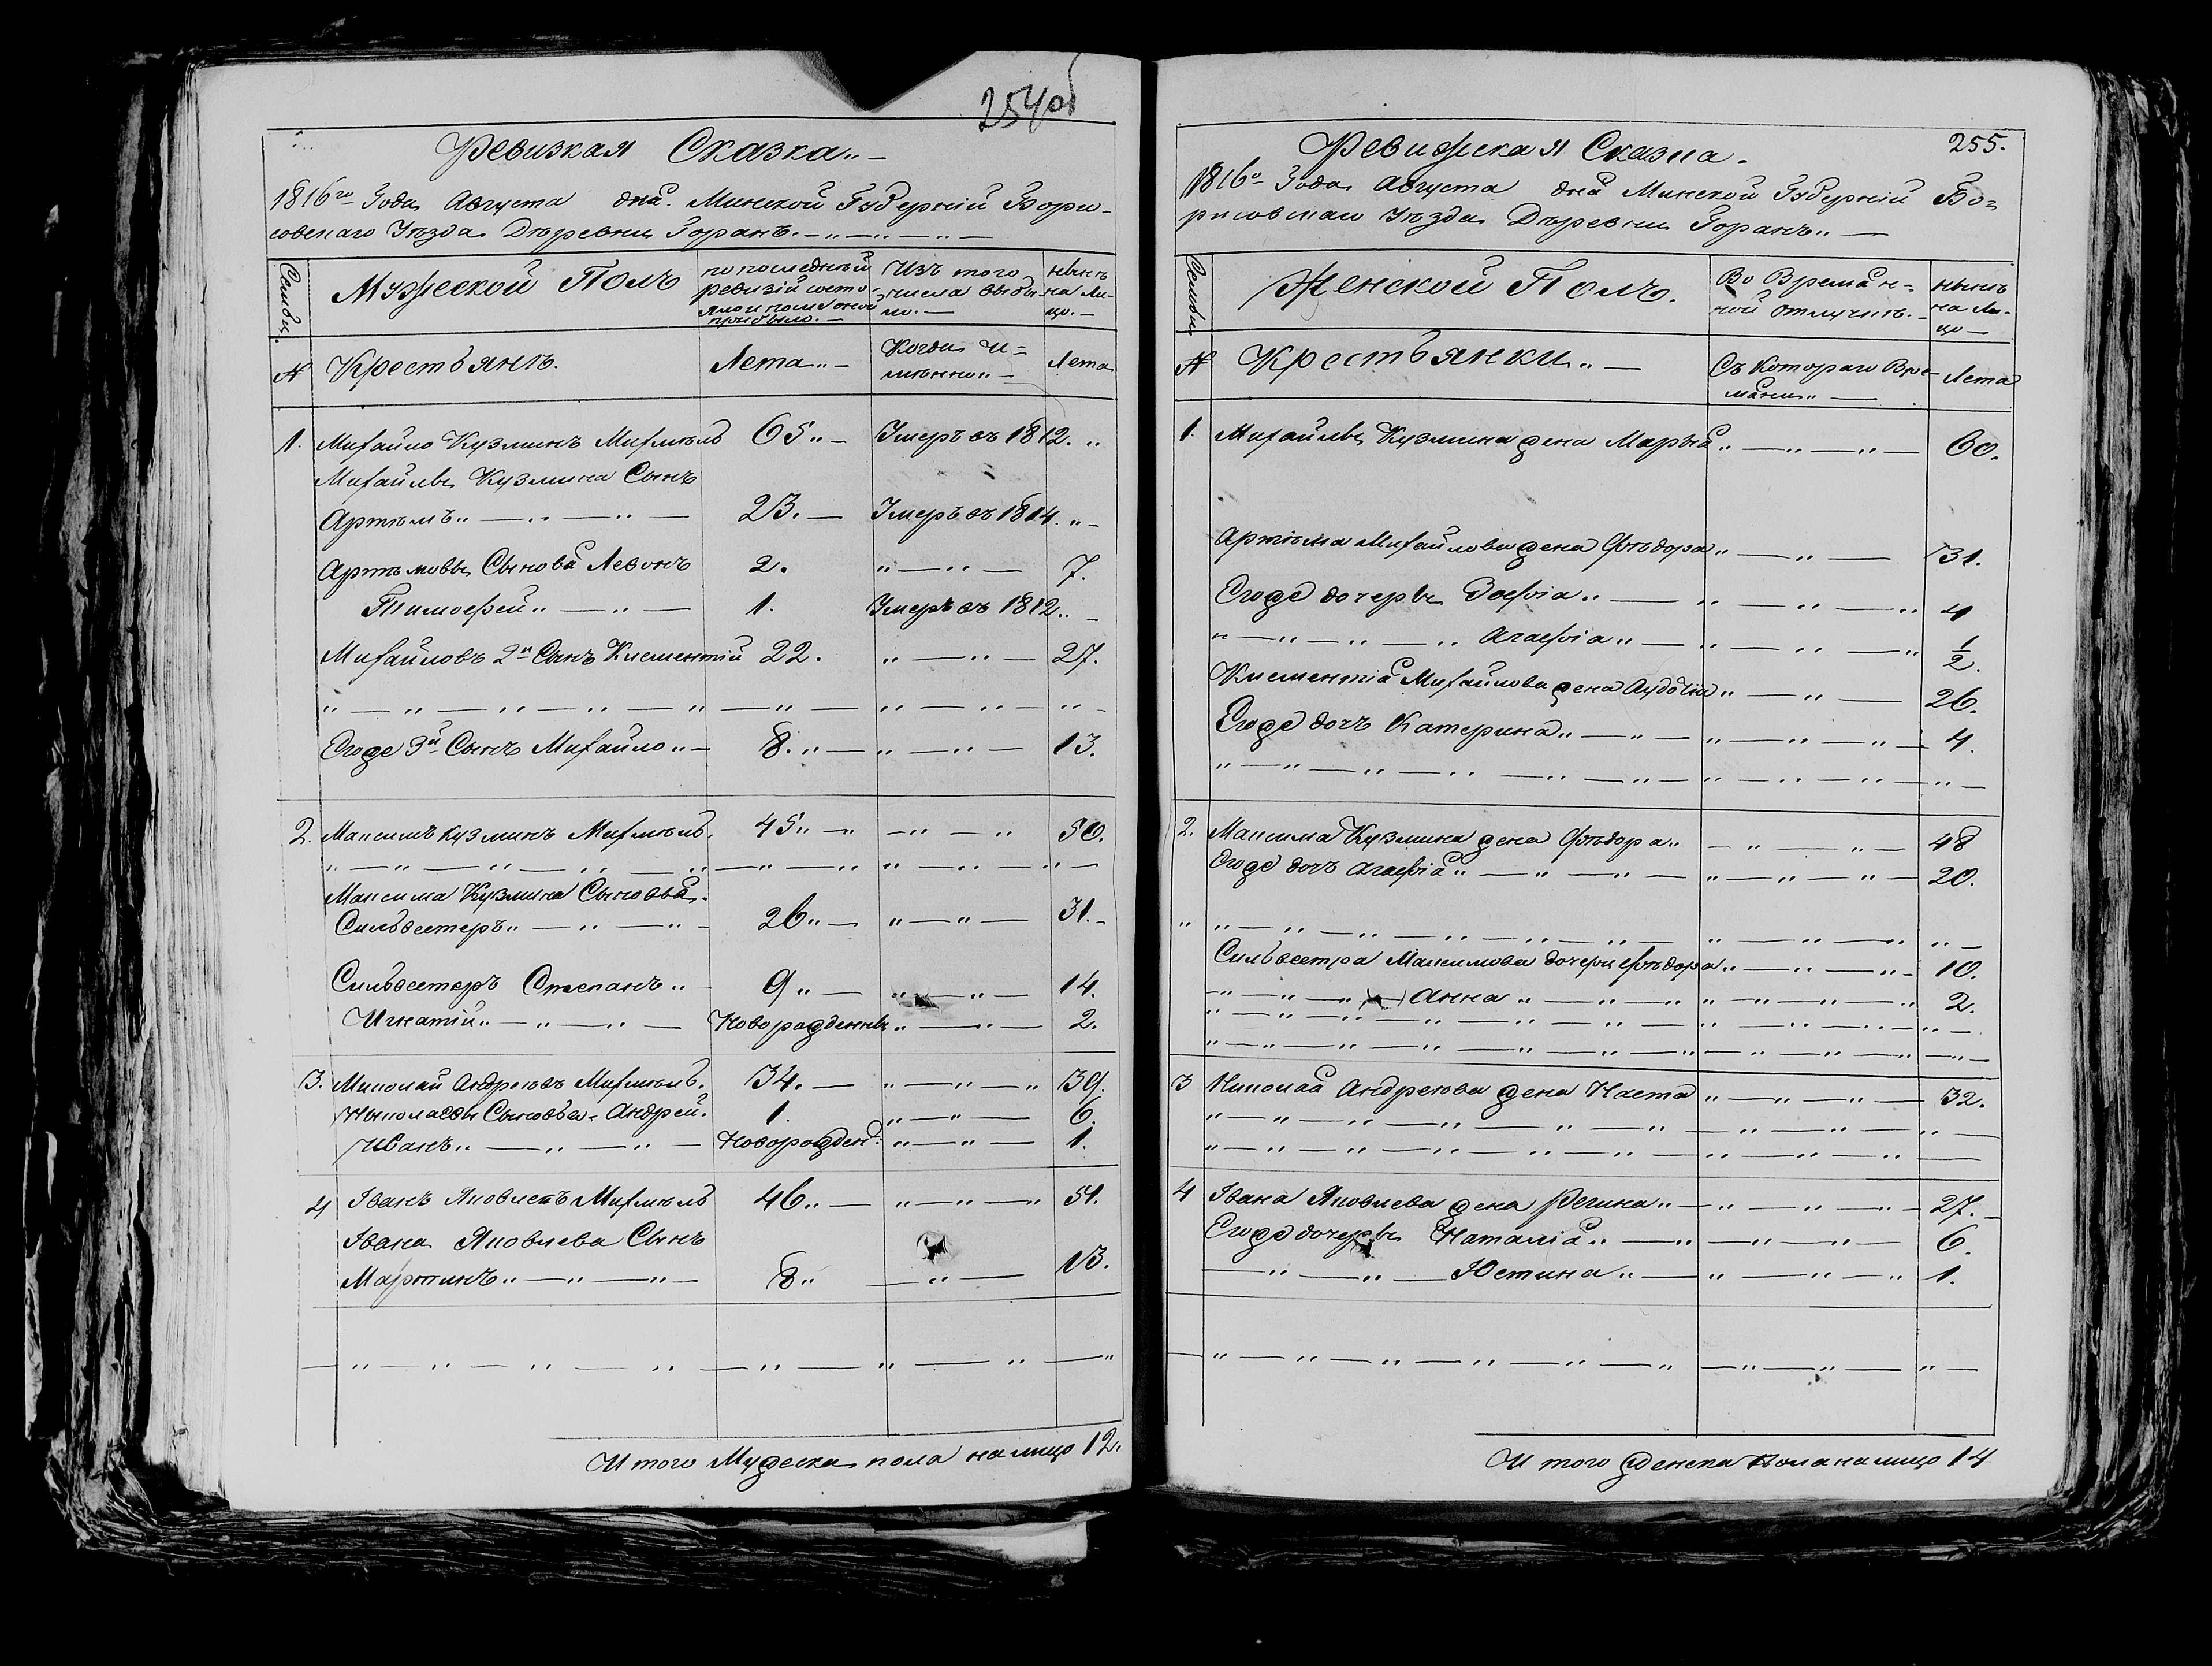 254об
Ревизкая Сказка
1816го Года Августа дня. Минской Губерніи Бори-
совскаго Уѣзда Дѣревни Горанъ.
Семьи
Мужеской Полъ
по последнѣй ревизіи состо-
яло и после оной
прибыло.
Изъ того
числа выбы-
ло.
нынѣ
на ли-
цо.
№ Крестьянѣ.
Лета
Когда и-
мѣнно
Лета
1. Михайло Кузминъ Михмѣль 65 Умеръ въ 1812.
Михайлы Кузмина Сынъ
Артѣмъ 23. Умеръ въ 1814.
Артѣмовы Сыновя Левонъ 2. 7.
Тимофей 1. Умеръ въ 1812
Михайловъ 2й Сынъ Клементій 22. 27.
Егоже 3й Сынъ Михайло 8. 13.
2. Максимъ Кузминъ Михмѣль. 45 50.
Максима Кузмина Сыновья.
Сильвестеръ 26 31.
Сильвестеръ Степанъ 9 14.
Игнатій Новорожденны 2.
3. Миколай Андреювъ Михмѣль. 34. 39.
Ныколаевы Сыновья Андрей. 1. 6.
Иванъ Новорожден: 1.
4 Іванъ Яковлевъ Михмѣль 46 51.
Івана Яковлева Сынъ
Мартинъ 8 13.
И того Мужеска пола налицо 12.
255.
Ревижская Сказка.
1816о Года Августа дня Минской Губерніи Бо-
рисовскаго Уѣзда Дѣревни Горанъ
Семьи
Женской Полъ.
Во Времян-
ной отлучкѣ.
нынѣ
на ли-
цо
№ Крестьянки
Съ Котораго Вре-
мяни
Лета
1. Михайлы Кузмина жена Марья 60.
Артѣма Михайлова жена Фѣдора 31.
Егоже дочеры Зофія 4
Агафія 1/2.
Клементія Михайлова жена Аудоція 26.
Егоже дочъ Катерина 4.
2. Максима Кузмина жена Фѣдора 48
Егоже дочъ Агафія 20.
Сильвестра Максимова дочери Фѣдора 10.
Анна 2.
3 Николая Андреюва жена Наста 32.
4 Івана Яковлева жена Регина 27.
Егоже дочеры Наталія 6.
Юстина 1.
И того женска Пола налицо 14